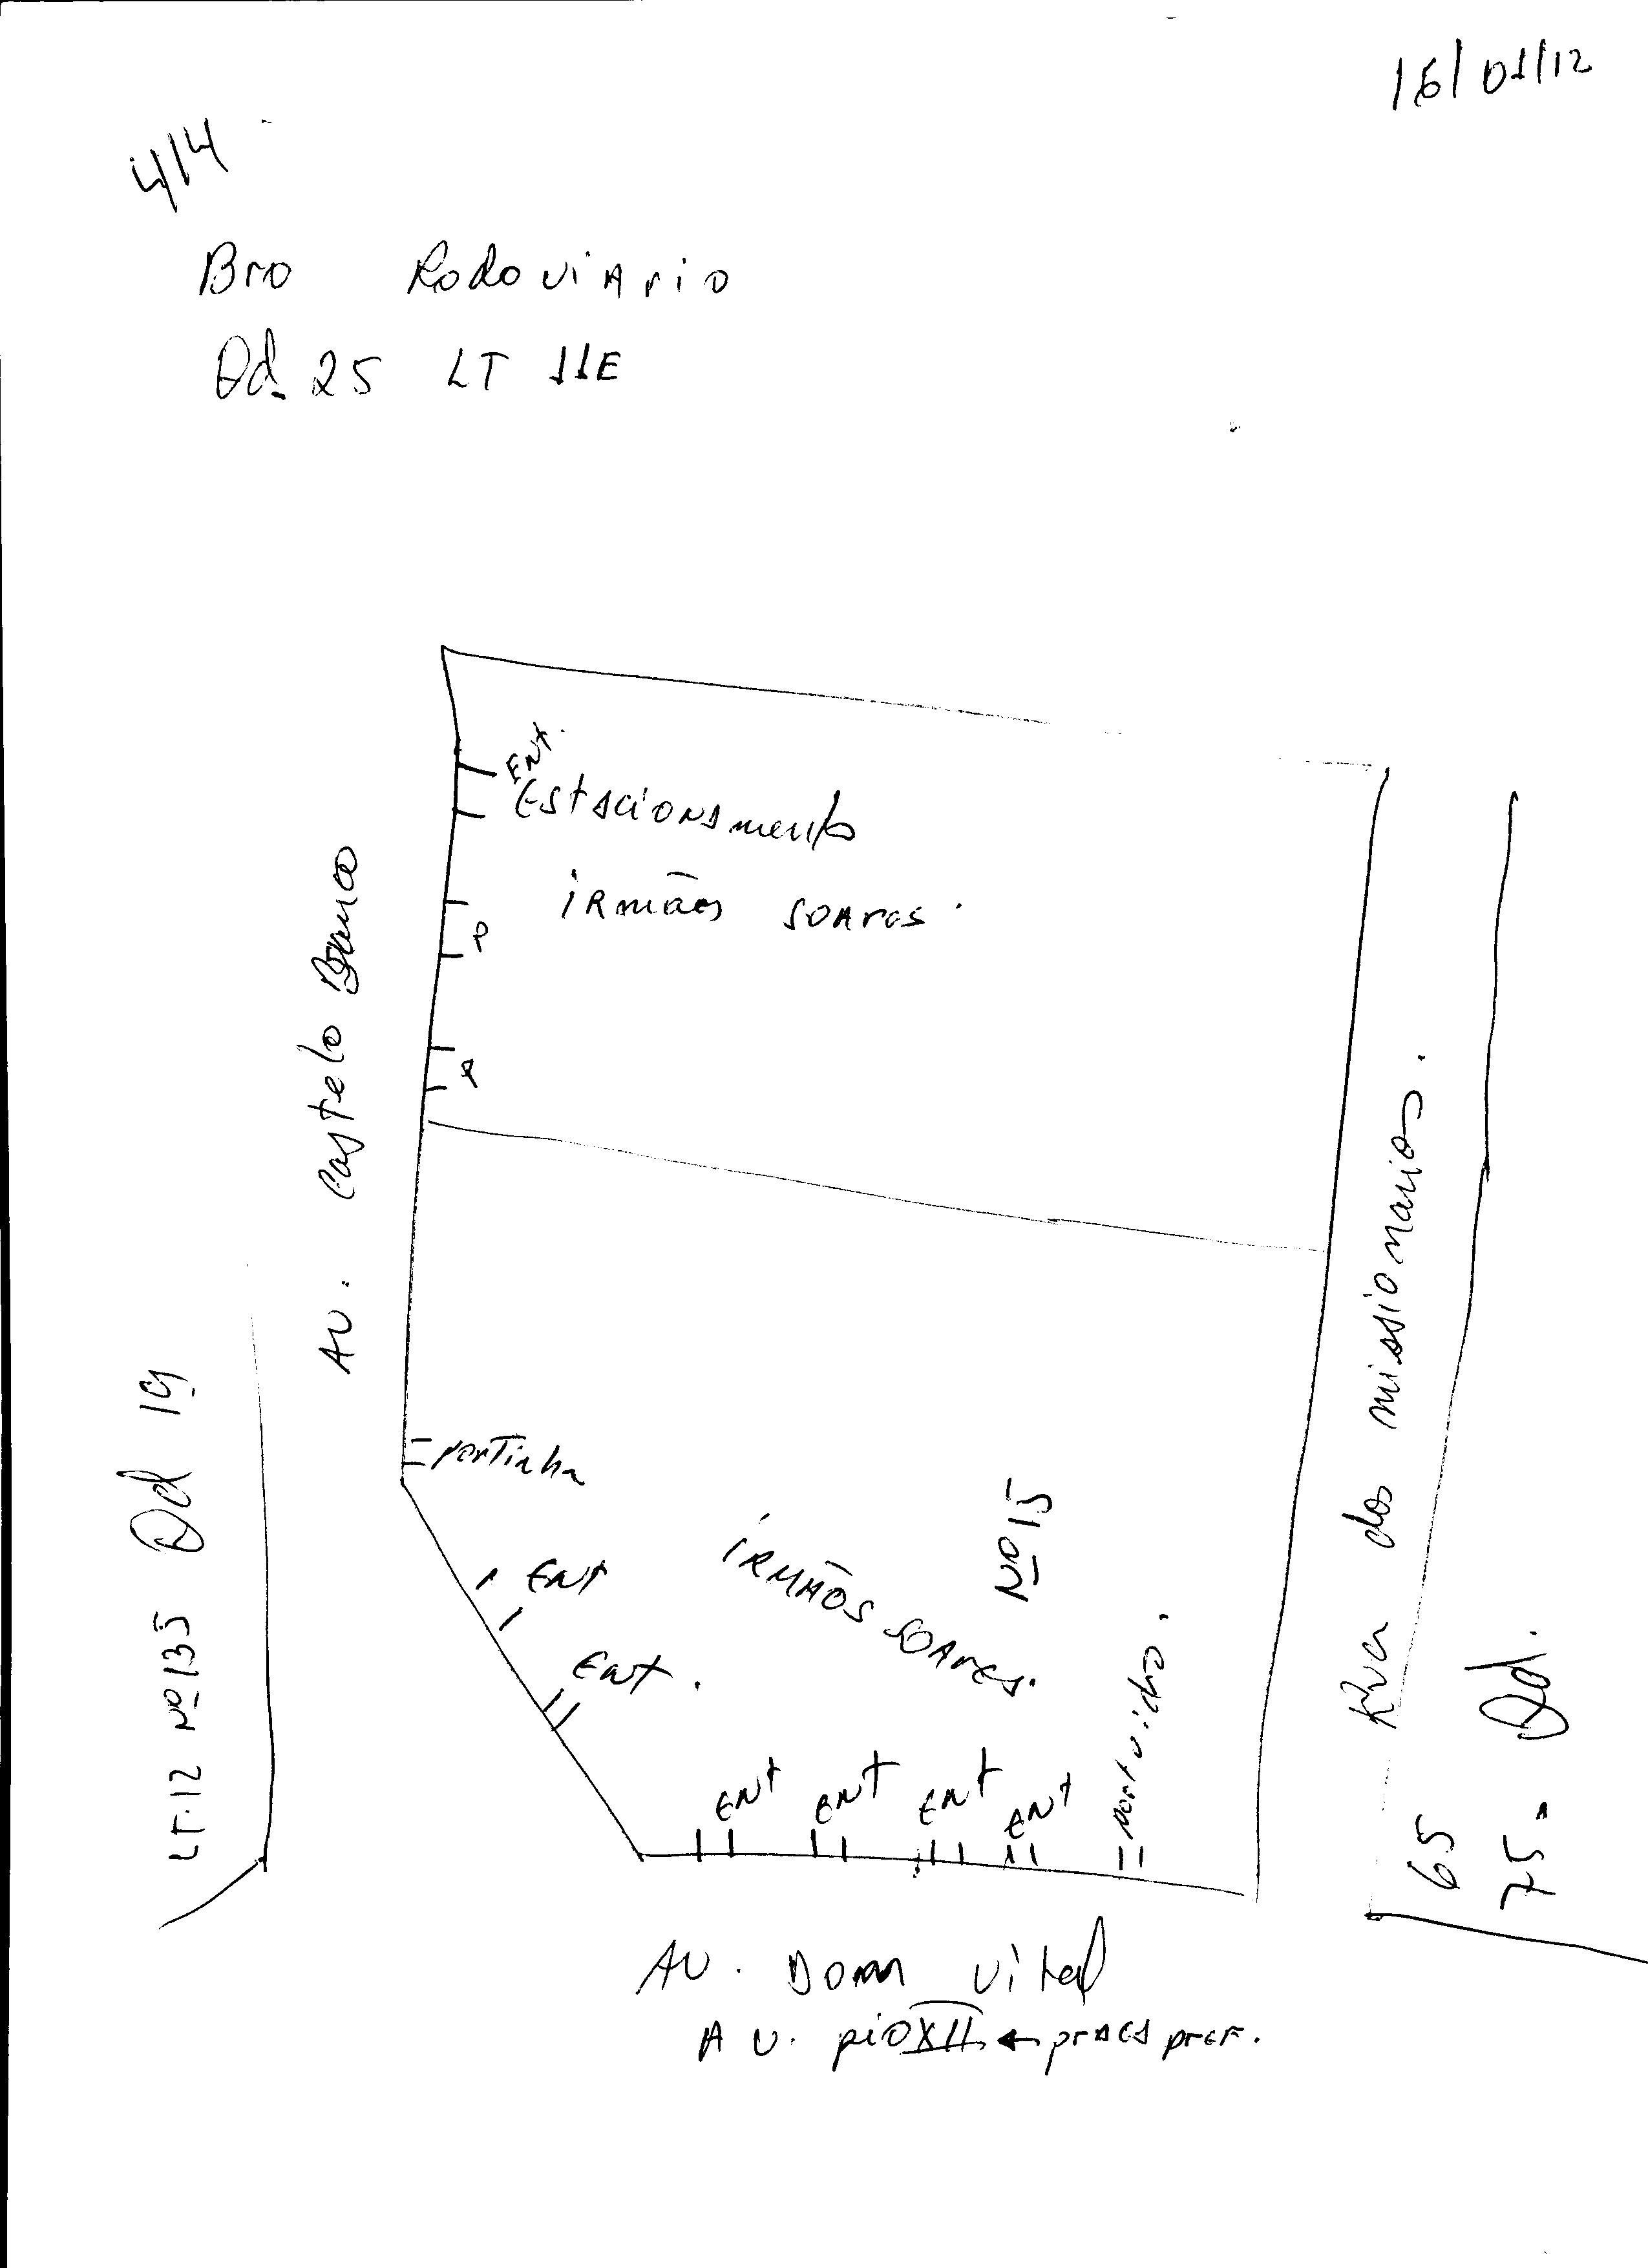 16/01/12
4/4
Bro Rodoviario
Qd 25 LT 11E
Ent.
Estacionamento
irmãos soares.
P
Av. Castelo Branco
Rua dos missionarios.
portinha
Qd 19
LT.12 Nº 135
Ent
Ent.
irmãos soares.
Nº 15
Ent
Ent
Ent
Ent
port vidro.
65
75 = Qd.
Av. Dom vital
Av. pio XII ← praça pref.